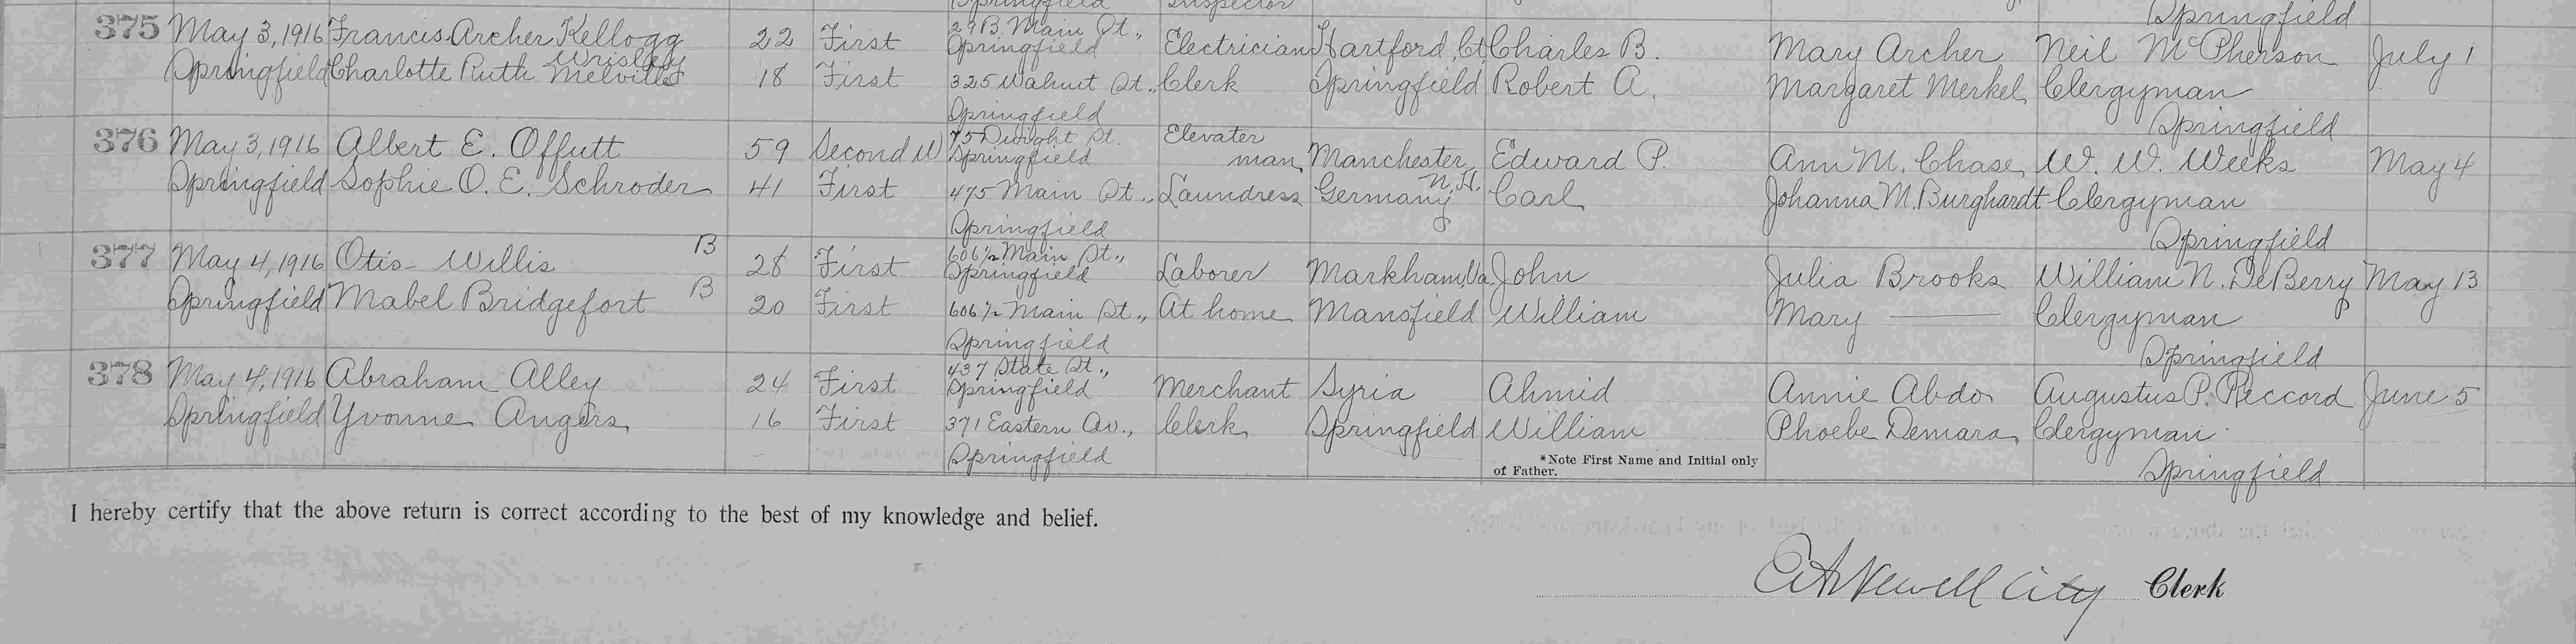 Springfield Inspector
Springfield
375 May 3, 1916 Francis Archer Kellogg 22 First 29B. Main St., Springfield Electrician Hartford, Ct Charles B. Mary Archer Neil McPherson July 1
Springfield Charlotte Ruth Melville Wrisley 18 First 325 Walnut St., Springfield Clerk Springfield Robert A. Margaret Merkel Clergyman
Springfield
376 May 3, 1916 Albert E. Offutt 59 Second W 75 Dwight St. Springfield Elevater man Manchester, N.H. Edward P. Ann M. Chase W. W. Weeks May 4
Springfield Sophie O. E. Schroder 41 First 475 Main St., Springfield Laundress Germany Carl Johanna M. Burghardt Clergyman
Springfield
377 May 4, 1916 Otis Willis B 28 First 606½ Main St., Springfield Laborer Markham, Va. John Julia Brooks William N. DeBerry May 13
Springfield Mabel Bridgefort B 20 First 606½ Main St., Springfield At home Mansfield William Mary —— Clergyman
Springfield
378 May 4, 1916 Abraham Alley 24 First 437 State St., Springfield Merchant Syria Ahmid Annie Abdo Augustus P. Reccord June 5
Springfield Yvonne Angers 16 First 371 Eastern Av., Springfield Clerk Springfield William Phoebe Demara Clergyman
Springfield
*Note First Name and Initial only
of Father.
I hereby certify that the above return is correct according to the best of my knowledge and belief.
Newell City Clerk